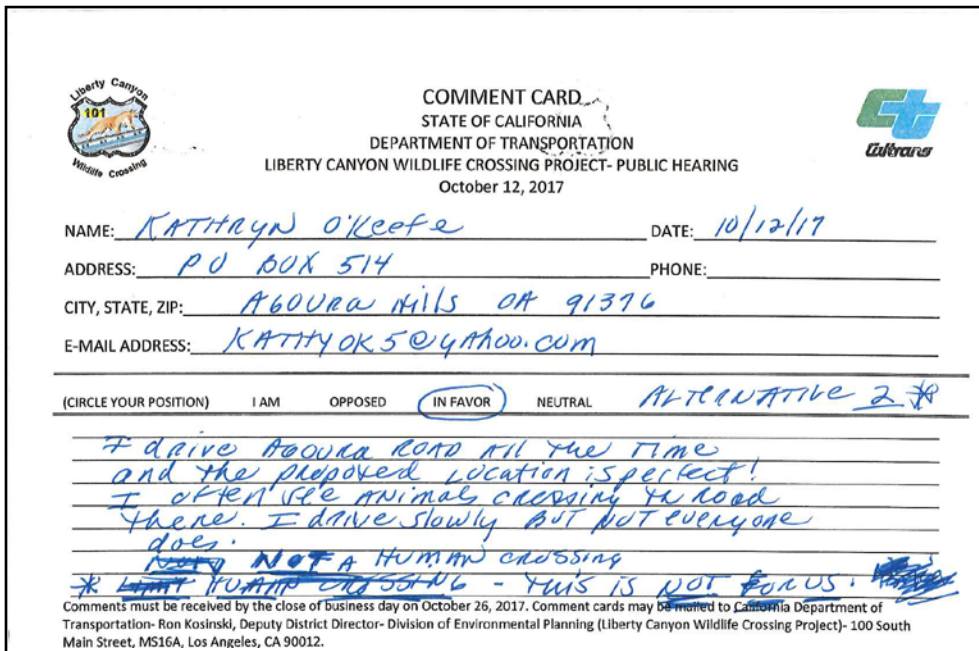 Liberty Canyon
101
Wildlife Crossing
COMMENT CARD
STATE OF CALIFORNIA
DEPARTMENT OF TRANSPORTATION
LIBERTY CANYON WILDLIFE CROSSING PROJECT- PUBLIC HEARING
October 12, 2017
Caltrans
NAME: KATHRYN O'Keefe DATE: 10/12/17
ADDRESS: PO BOX 514 PHONE:
CITY, STATE, ZIP: AGOURA Hills CA 91376
E-MAIL ADDRESS: KATHYOK5@yahoo.com
(CIRCLE YOUR POSITION) I AM OPPOSED IN FAVOR NEUTRAL ALTERNATIVE 2 *
I drive AGOURA ROAD All the Time
and the proposed Location is perfect!
I often see ANIMALS crossing th road
there. I drive slowly BUT NOT everyone
does.
NOT A HUMAN CROSSING
* HUMAN CROSSING - THIS IS NOT FOR US.
Comments must be received by the close of business day on October 26, 2017. Comment cards may be mailed to California Department of
Transportation- Ron Kosinski, Deputy District Director- Division of Environmental Planning (Liberty Canyon Wildlife Crossing Project)- 100 South
Main Street, MS16A, Los Angeles, CA 90012.